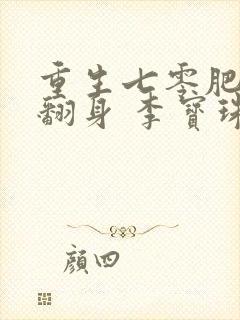 重生七零肥
翻身 李寶珠
顏四